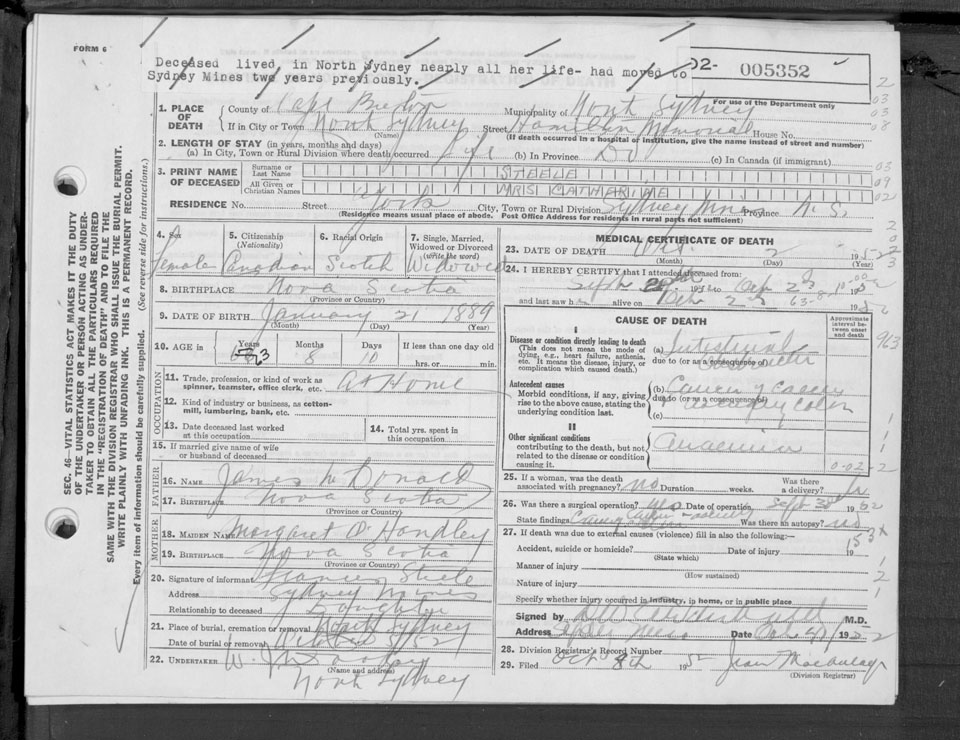 FORM 6
Deceased lived in North Sydney neaply all her life- had moved to
Sydney Mines two years previously.
02- 005352
For use of the Department only
1. PLACE OF DEATH
County of Cape Breton Municipality of North Sydney
If in City or Town North Sydney Street Hamilton Memorial House No.
(Name) (If death occurred in a hospital or institution, give the name instead of street and number)
2. LENGTH OF STAY (in years, months and days)
(a) In City, Town or Rural Division where death occurred Life (b) In Province Do (c) In Canada (if immigrant)
3. PRINT NAME OF DECEASED
Surname or Last Name STEELE
All Given or Christian Names MRS CATHERINE
RESIDENCE No. Street York City, Town or Rural Division Sydney Mines Province N. S.
(Residence means usual place of abode. Post Office Address for residents in rural parts not sufficient)
4. Sex Female
5. Citizenship (Nationality) Canadian
6. Racial Origin Scotch
7. Single, Married, Widowed or Divorced (write the word) Widowed
8. BIRTHPLACE Nova Scotia
(Province or Country)
9. DATE OF BIRTH January 21 1889
(Month) (Day) (Year)
10. AGE in Years 63 Months 8 Days 10 If less than one day old
hrs. or min.
OCCUPATION
11. Trade, profession, or kind of work as spinner, teamster, office clerk, etc. At Home
12. Kind of industry or business, as cotton-mill, lumbering, bank, etc.
13. Date deceased last worked at this occupation
14. Total yrs. spent in this occupation
15. If married give name of wife or husband of deceased
FATHER
16. NAME James McDonald
17. BIRTHPLACE Nova Scotia
(Province or Country)
MOTHER
18. MAIDEN NAME Margaret O'Handley
19. BIRTHPLACE Nova Scotia
(Province or Country)
20. Signature of informant Frances Steele
Address Sydney Mines
Relationship to deceased Daughter
21. Place of burial, cremation or removal North Sydney
Date of burial or removal
22. UNDERTAKER W. J. Dooley
(Name and address)
North Sydney
MEDICAL CERTIFICATE OF DEATH
23. DATE OF DEATH Oct. 2 1952
(Month) (Day) (Year)
24. I HEREBY CERTIFY that I attended deceased from:
Sept 1952 to Oct 2nd 1952
and last saw h alive on Oct 2nd 1952
CAUSE OF DEATH
Approximate interval between onset and death
I
Disease or condition directly leading to death
(This does not mean the mode of dying, e.g., heart failure, asthenia, etc. It means the disease, injury, or complication which caused death.)
(a) Intestinal
due to (or as a consequence of)
Antecedent causes
Morbid conditions, if any, giving rise to the above cause, stating the underlying condition last.
(b)
due to (or as a consequence of)
(c)
II
Other significant conditions
contributing to the death, but not related to the disease or condition causing it.
Anaemia
25. If a woman, was the death associated with pregnancy? No Duration weeks. Was there a delivery? No
26. Was there a surgical operation? Date of operation Sept 30 1952
State findings Was there an autopsy? no
27. If death was due to external causes (violence) fill in also the following:—
Accident, suicide or homicide? Date of injury 19
(State which)
Manner of injury
(How sustained)
Nature of injury
Specify whether injury occurred in industry, in home, or in public place
Signed by M.D.
Address Date
28. Division Registrar's Record Number
29. Filed Oct 8th 1952 Jean Macaulay
(Division Registrar)
SEC. 46—VITAL STATISTICS ACT MAKES IT THE DUTY
OF THE UNDERTAKER OR PERSON ACTING AS UNDER-
TAKER TO OBTAIN ALL THE PARTICULARS REQUIRED
IN THE "REGISTRATION OF DEATH" AND TO FILE THE
SAME WITH THE DIVISION REGISTRAR WHO SHALL ISSUE THE BURIAL PERMIT.
WRITE PLAINLY WITH UNFADING INK. THIS IS A PERMANENT RECORD.
Every item of information should be carefully supplied. (See reverse side for instructions.)